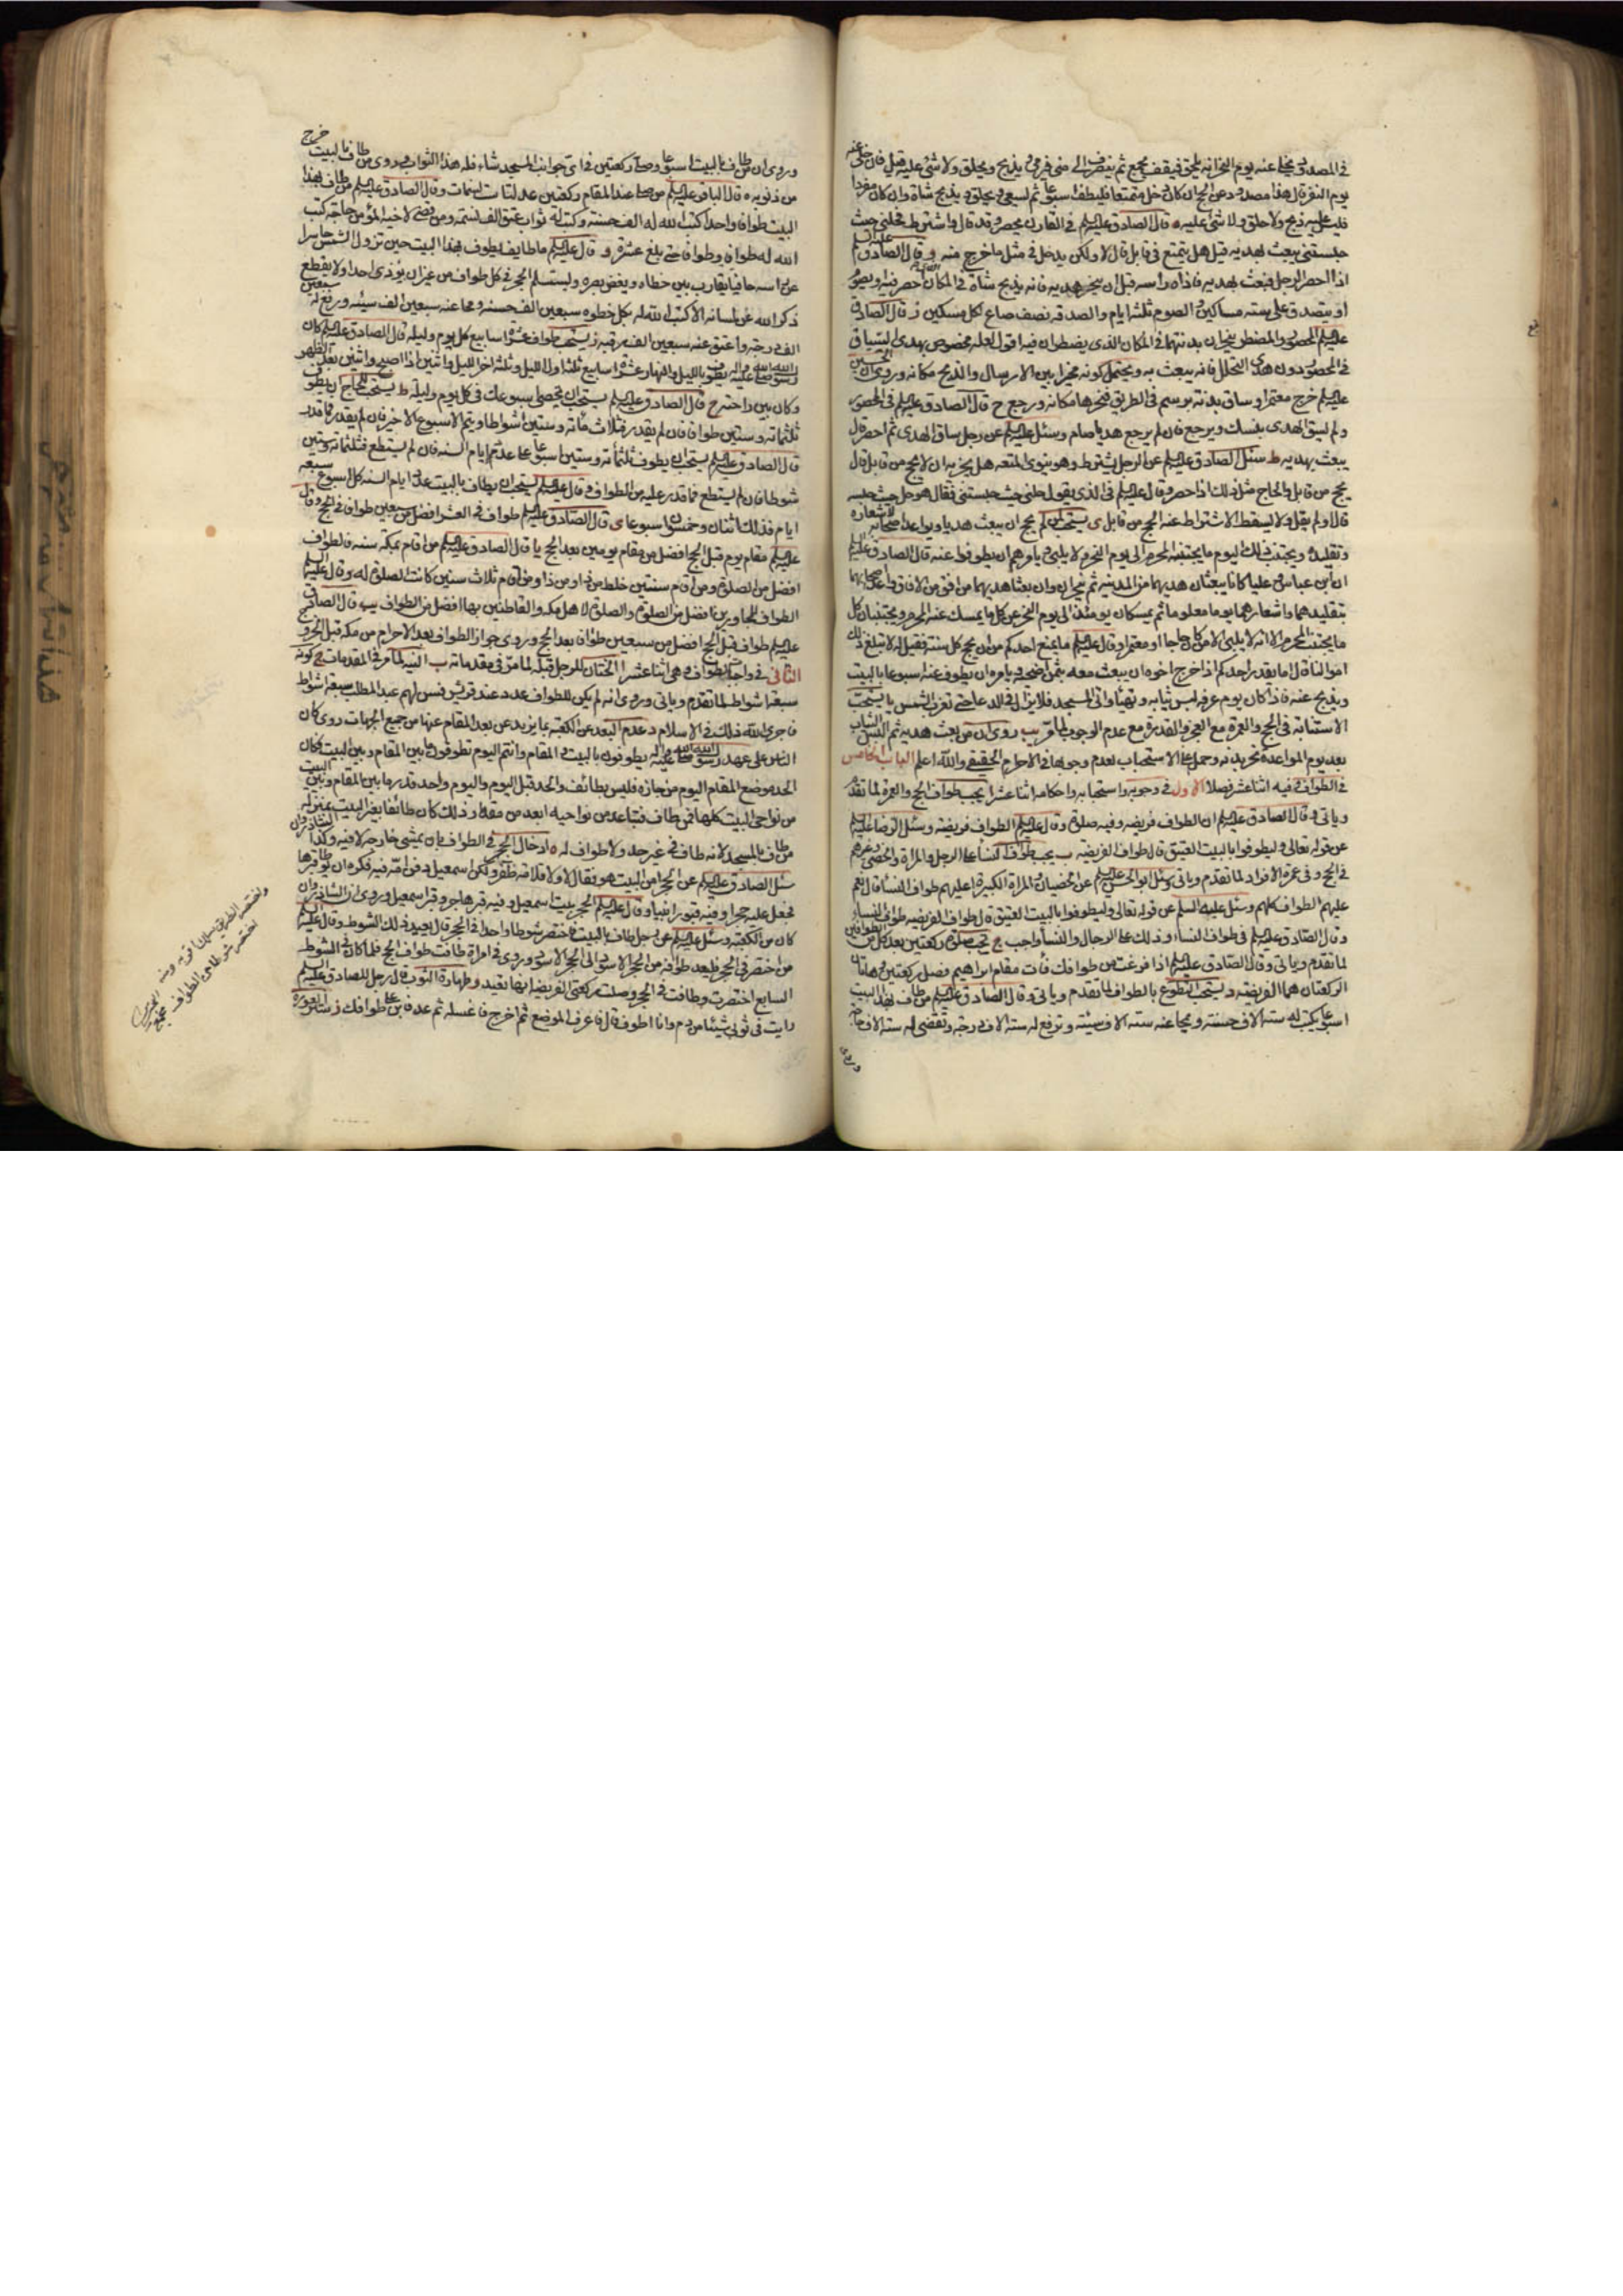 في المصدود يخلى عنه يوم النحر انه يلحق فيقف بجمع ثم ينصرف الى منى فيرمى ويذبح ويحلق ولا شئ عليه قيل فان خلى عنه
يوم النفر قال هذا مصدود عن الحج ان كان دخل متمتعا فليطف اسبوعا ثم ليسعى ويحلق ويذبح شاة وان كان مفردا
فليس عليه ذبح ولا حلق ولا شئ عليه ه قال الصادق عليه السلم في القارن يحصر وقد قال واشترط فحلني حيث
حبستني يبعث بهديه قيل هل يتمتع في قابل قال لا ولكن يدخل في مثل ما خرج منه و قال الصادق عليه السلم
اذا احصر الرجل فبعث بهديه فاذاه راسه قبل ان ينحر هديه فانه يذبح شاة في المكان الذي احصر فيه او يصوم
او يتصدق على ستة مساكين والصوم ثلثة ايام والصدقة نصف صاع لكل مسكين ز قال الصادق
عليه السلم المحصور والمضطر ينحران بدنتهما في المكان الذي يضطران فيه اقول لعله مخصوص بهدى السياق
في المحصور دون هدى التحلل فانه يبعث به ويحتمل كونه مخيرا بين الارسال والذبح مكانه وروى ان الحسين
عليه السلم خرج معتمرا وساق بدنة برسم في الطريق فنحرها مكانه ورجع ح قال الصادق عليه السلم في المحصور
ولم يسق الهدى ينسك ويرجع فان لم يرجع هديا صام وسئل عليه السلم عن رجل ساق الهدى ثم احصر قال
يبعث بهديه ط سئل الصادق عليه السلم عن الرجل يشترط وهو ينوى المتعة هل يجزيه ان لا يحج من قابل قال
يحج من قابل والحاج مثل ذلك اذا احصر وقال عليه السلم في الذي يقول حلني حيث حبستني فقال هو حل حيث حبسه
قال اولم يقل ولا يسقط الاشتراط عنه الحج من قابل ى يستحب لمن لم يحج ان يبعث هديا ويواعد اصحابه لاشعاره
وتقليده ويجتنب ذلك اليوم ما يجتنبه المحرم الى يوم النحر ولا يلبي ويامرهم ان يطوفوا عنه قال الصادق عليه السلم
ان ابن عباس وعليا كانا يبعثان هديهما من المدينة ثم ينحران وان بعثا هديهما من افق من الافاق واعدا اصحابهما
بتقليدهما واشعارهما يوما معلوما ثم يمسكان يومئذ الى يوم النحر عن كل ما يمسك عنه المحرم ويجتنبان كل
ما يجتنب المحرم الا انه لا يلبي الا من كان حاجا او معتمرا وقال عليه السلم ما يمنع احدكم من ان يحج كل سنة فقيل له لا تبلغ ذلك
اموالنا قال اما يقدر احدكم اذا خرج اخوه ان يبعث معه بثمن اضحية ويامره ان يطوف عنه سبوعا بالبيت
ويذبح عنه فاذا كان يوم عرفه لبس ثيابه وتهيأ واتى المسجد فلا يزال في الدعا حتى تغرب الشمس يا يستحب
الاستنابة في الحج والعمرة مع العجز والقدرة مع عدم الوجوب لما مر يب روى ان من بعث هديه ثم لبس الثياب
بعد يوم المواعدة نحر بدنة وحمل على الاستحباب لعدم وجوبها في الاحرام الحقيقي والله اعلم الباب الخامس
في الطواف وفيه اثنا عشر فصلا الاول في وجوبه واستحبابه واحكامه اثنا عشر ا يجب طواف الحج والعمرة لما تقدم
وياتي وقال الصادق عليه السلم ان الطواف فريضة وفيه صلوة وقال عليه السلم الطواف فريضة وسئل الرضا عليه السلم
عن قوله تعالى وليطوفوا بالبيت العتيق قال طواف الفريضة ب يجب طواف النسا على الرجل والمراة والخصي وغيرهم
في الحج وفي عمرة الافراد لما تقدم وياتي وسئل ابو الحسن عليه السلم عن الخصيان والمراة الكبيرة اعليهم طواف النسأ قال نعم
عليهم الطواف كلهم وسئل عليه السلم عن قوله تعالى وليطوفوا بالبيت العتيق قال طواف الفريضة طواف النساء
وقال الصادق عليه السلم في طواف النساء وذلك على الرجال والنسأ واجب ج تجب صلوة ركعتين بعد كل من الطوافين
لما تقدم وياتي وقال الصادق عليه السلم اذا فرغت من طوافك فأت مقام ابراهيم فصل ركعتين وهاتان
الركعتان هما الفريضة د يستحب التطوع بالطواف لما تقدم وياتي وقال الصادق عليه السلم من طاف بهذا البيت
اسبوعا يكتب له ستة الاف حسنة ويمحا عنه ستة الاف سيئة وترفع له ستة الاف درجة وتقضى له ستة الاف حاجة
وروى
وروى ان من طاف بالبيت اسبوعا وصلى ركعتين في اي جوانب المسجد شاء فله هذا الثواب وروى من طاف بالبيت خرج
من ذنوبه ه قال الباقر عليه السلم من صلى عند المقام ركعتين عدلتا ست نسمات وقال الصادق عليه السلم من طاف بهذا
البيت طوافا واحدا كتب الله له الف حسنة وكتب له ثواب عتق الف نسمة ومن قضى لاخيه المؤمن حاجة كتب
الله له طوافا وطوافا حتى بلغ عشرة و قال عليه السلم ما طايف يطوف بهذا البيت حين تزول الشمس حاسرا
عن راسه حافيا يقارب بين خطاه ويغض بصره ويستلم الحجر في كل طواف من غير ان يؤذى احدا ولا يقطع
ذكر الله عن لسانه الا كتب الله له بكل خطوة سبعين الف حسنة ومحا عنه سبعين الف سيئة ورفع له سبعين
الف درجة واعتق عنه سبعين الف رقبة ز يستحب طواف عشرة اسابيع كل يوم وليلة قال الصادق عليه السلم كان
رسول الله صلى الله عليه واله يطوف بالليل والنهار عشرة اسابيع ثلثة اول الليل وثلثة اخر الليل واثنين اذا اصبح واثنين بعد الظهر
وكان بين راحته ح قال الصادق عليه السلم يستحب ان يحصى سبوعك في كل يوم وليلة ط يستحب للحاج ان يطوف
ثلثمائة وستين طوافا فان لم يقدر فثلاث مائة وستين اشواطا ويتم الاسبوع الاخير فان لم يقدر فما قدر
قال الصادق عليه السلم يستحب ان يطوف ثلثمائة وستين اسبوعا على عدد ايام السنة فان لم يستطع فثلثمائة وستين
شوطا فان لم يستطع فما قدر عليه من الطواف وقال عليه السلم يستحب ان يطاف بالبيت عدد ايام السنة كل اسبوع سبعة
ايام فذلك اثنان وخمسون اسبوعا ى قال الصادق عليه السلم طواف في العشر افضل من سبعين طواف في الحج وقال
عليه السلم مقام يوم قبل الحج افضل من مقام يومين بعد الحج يا قال الصادق عليه السلم من اقام بمكة سنة فالطواف
افضل من الصلوة ومن اقام سنتين خلط من ذا ومن ذا ومن اقام ثلاث سنين كانت الصلوة له وقال عليه السلم
الطواف للمجاورين افضل من الصلوة والصلوة لاهل مكه والقاطنين بها افضل من الطواف يب قال الصادق
عليه السلم طواف قبل الحج افضل من سبعين طوافا بعد الحج وروى جواز الطواف بعد الاحرام من مكه قبل الخروج
الثاني في واجبات الطواف وهي اثنا عشر ا الختان للرجل قبله لما مر في مقدماته ب النية لما مر في المقدمات ج كونه
سبعة اشواط لما تقدم وياتي وروى انه لم يكن للطواف عدد عند قريش فسن لهم عبد المطلب سبعة اشواط
فاجرى الله ذلك في الاسلام د عدم البعد عن الكعبة بما يزيد عن بعد المقام عنها من جميع الجهات روى كان
الناس على عهد رسول الله صلى الله عليه واله يطوفون بالبيت والمقام وانتم اليوم تطوفون ما بين المقام وبين البيت فكان
الحد موضع المقام اليوم من جازه فليس بطائف والحد قبل اليوم واليوم واحد قدر ما بين المقام وبين البيت
من نواحى البيت كلها فمن طاف فتباعد من نواحيه ابعد من مقدار ذلك كان طائفا بغير البيت بمنزلة
من طاف بالمسجد لانه طاف في غير حد ولا طواف له ه ادخال الحجر في الطواف بان يمشى خارجه لا فيه وكذا الشاذروان
سئل الصادق عليه السلم عن الحجر امن البيت هو فقال لا ولا قلامة ظفر ولكن اسمعيل دفن امه فيه فكره ان يوطأ قبرها
فجعل عليه حجرا وفيه قبور انبياء وقال عليه السلم الحجر بيت اسمعيل وفيه قبر هاجر وقبر اسمعيل وروى ان الشاذروان
كان من الكعبة وسئل عليه السلم عن رجل طاف بالبيت فاختصر شوطا واحدا في الحجر قال يعيد ذلك الشوط وقال عليه السلم
من اختصر في الحجر فليعد طوافه من الحجر الاسود الى الحجر الاسود وروى في امراة طافت طواف الحج فلما كان في الشوط
السابع اختصرت وطافت في الحجر وصلت ركعتي الفريضة انها تعيد و طهارة الثوب قال رجل للصادق عليه السلم
رايت في ثوبي شيئا من دم وانا اطوف قال فاعرف الموضع ثم اخرج فاغسله ثم عد فابن على طوافك ز ستر العورة
اختصر شوطا من الطواف